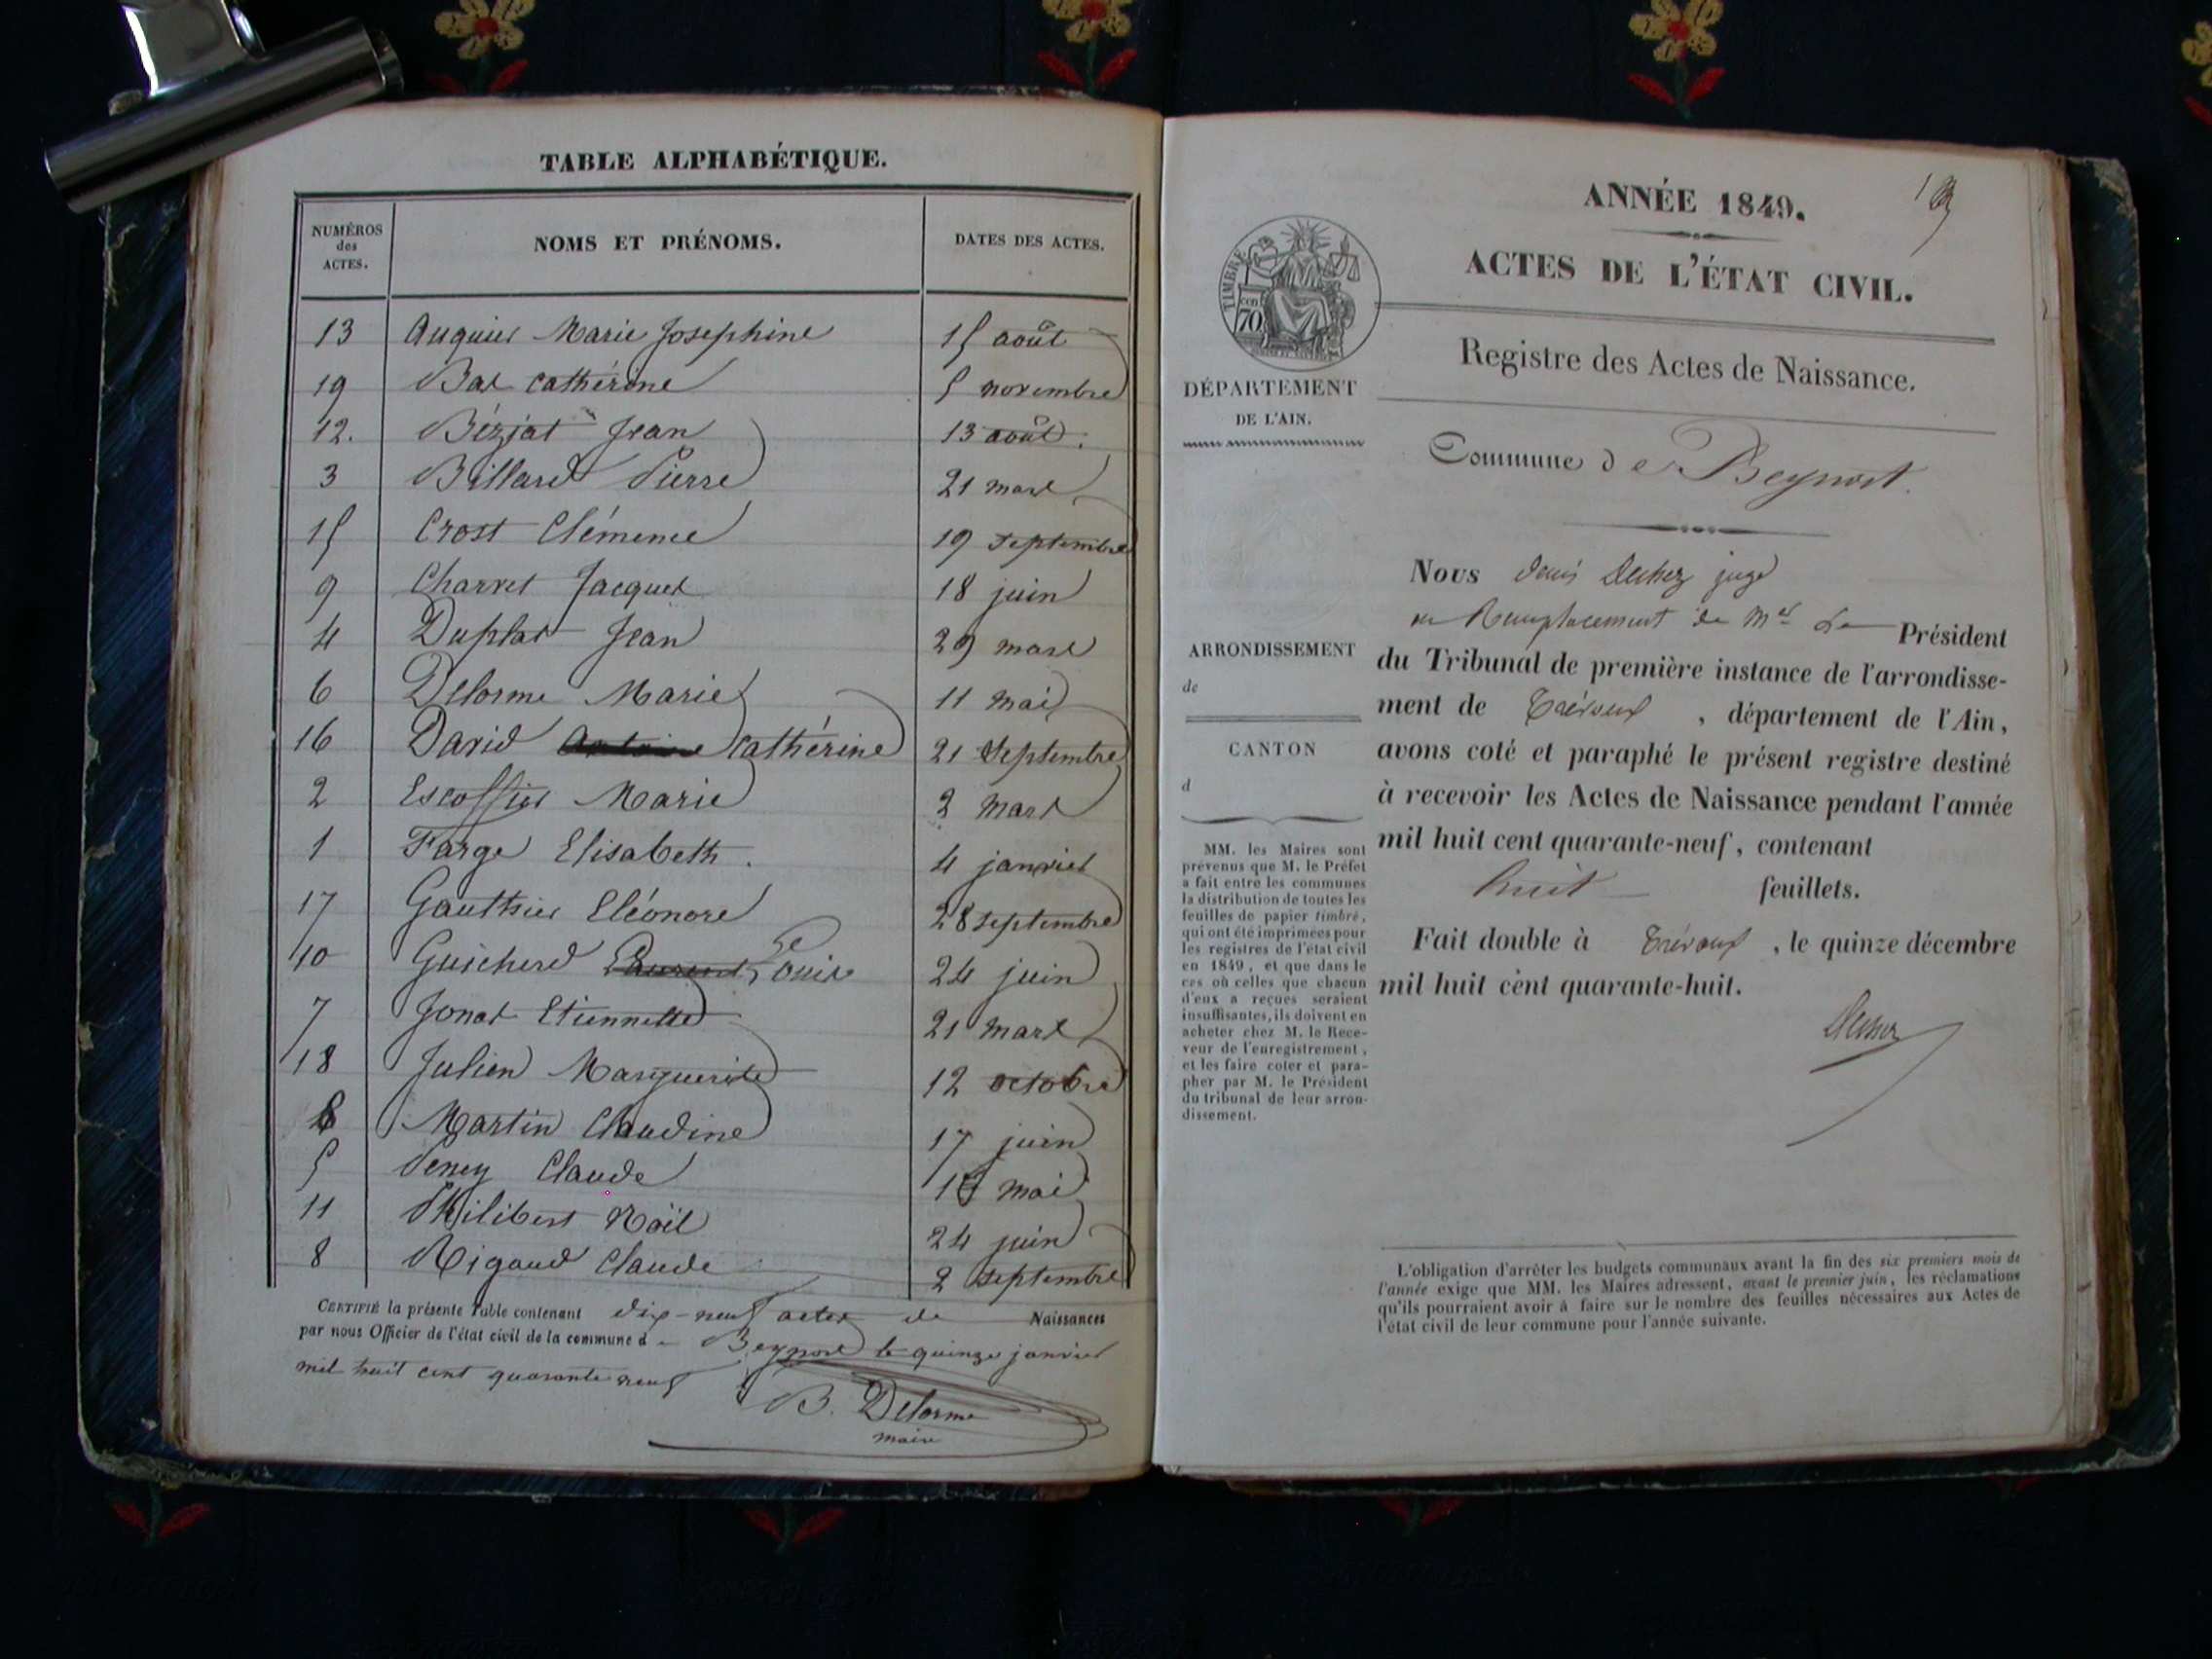 TABLE ALPHABÉTIQUE.
NUMÉROS des ACTES.
NOMS ET PRÉNOMS.
DATES DES ACTES.
13 Auguier Marie Josephine 15 août
19 Bal cathérine 5 novembre
12. Bézjat Jean 13 août.
3 Billard Pierre 21 mars
15 Crost Clémence 19 septembre
9 Charvet Jacques 18 juin
4 Duplat Jean 29 mars
6 Delorme Marie 11 mai
16 David Antoine Cathérine 21 septembre
2 Escoffier Marie 2 mars
1 Farge Elisabeth. 4 janvier
17 Gauthier Eléonore 28 septembre
10 Guicherd Louis 24 juin
7 Jonat Etiennette 21 mars
18 Julien Marguerite 12 octobre
Martin Claudine 17 juin
5 Peney Claude mai
11 Philibert Noël 24 juin
8 Rigaud Claude 2 septembre
CERTIFIÉ la présente Table contenant dix-neuf actes de Naissances
par nous Officier de l'état civil de la commune de Beynost le quinze janvier
mil huit cent quarante neuf
B. Delorme
maire
ANNÉE 1849.
ACTES DE L'ÉTAT CIVIL.
TIMBRE
70
Registre des Actes de Naissance.
DÉPARTEMENT
DE L'AIN.
Commune de Beynost.
ARRONDISSEMENT
de
CANTON
d
MM. les Maires sont
prévenus que M. le Préfet
a fait entre les communes
la distribution de toutes les
feuilles de papier timbré,
qui ont été imprimées pour
les registres de l'état civil
en 1849, et que dans le
cas où celles que chacun
d'eux a reçues seraient
insuffisantes, ils doivent en
acheter chez M. le Rece-
veur de l'enregistrement,
et les faire coter et para-
pher par M. le Président
du tribunal de leur arron-
dissement.
Nous Denis juge
en Remplacement de Mr Le Président
du Tribunal de première instance de l'arrondisse-
ment de Trévoux, département de l'Ain,
avons coté et paraphé le présent registre destiné
à recevoir les Actes de Naissance pendant l'année
mil huit cent quarante-neuf, contenant
huit feuillets.
Fait double à Trévoux, le quinze décembre
mil huit cent quarante-huit.
L'obligation d'arrêter les budgets communaux avant la fin des six premiers mois de
l'année exige que MM. les Maires adressent, avant le premier juin, les réclamations
qu'ils pourraient avoir à faire sur le nombre des feuilles nécessaires aux Actes de
l'état civil de leur commune pour l'année suivante.